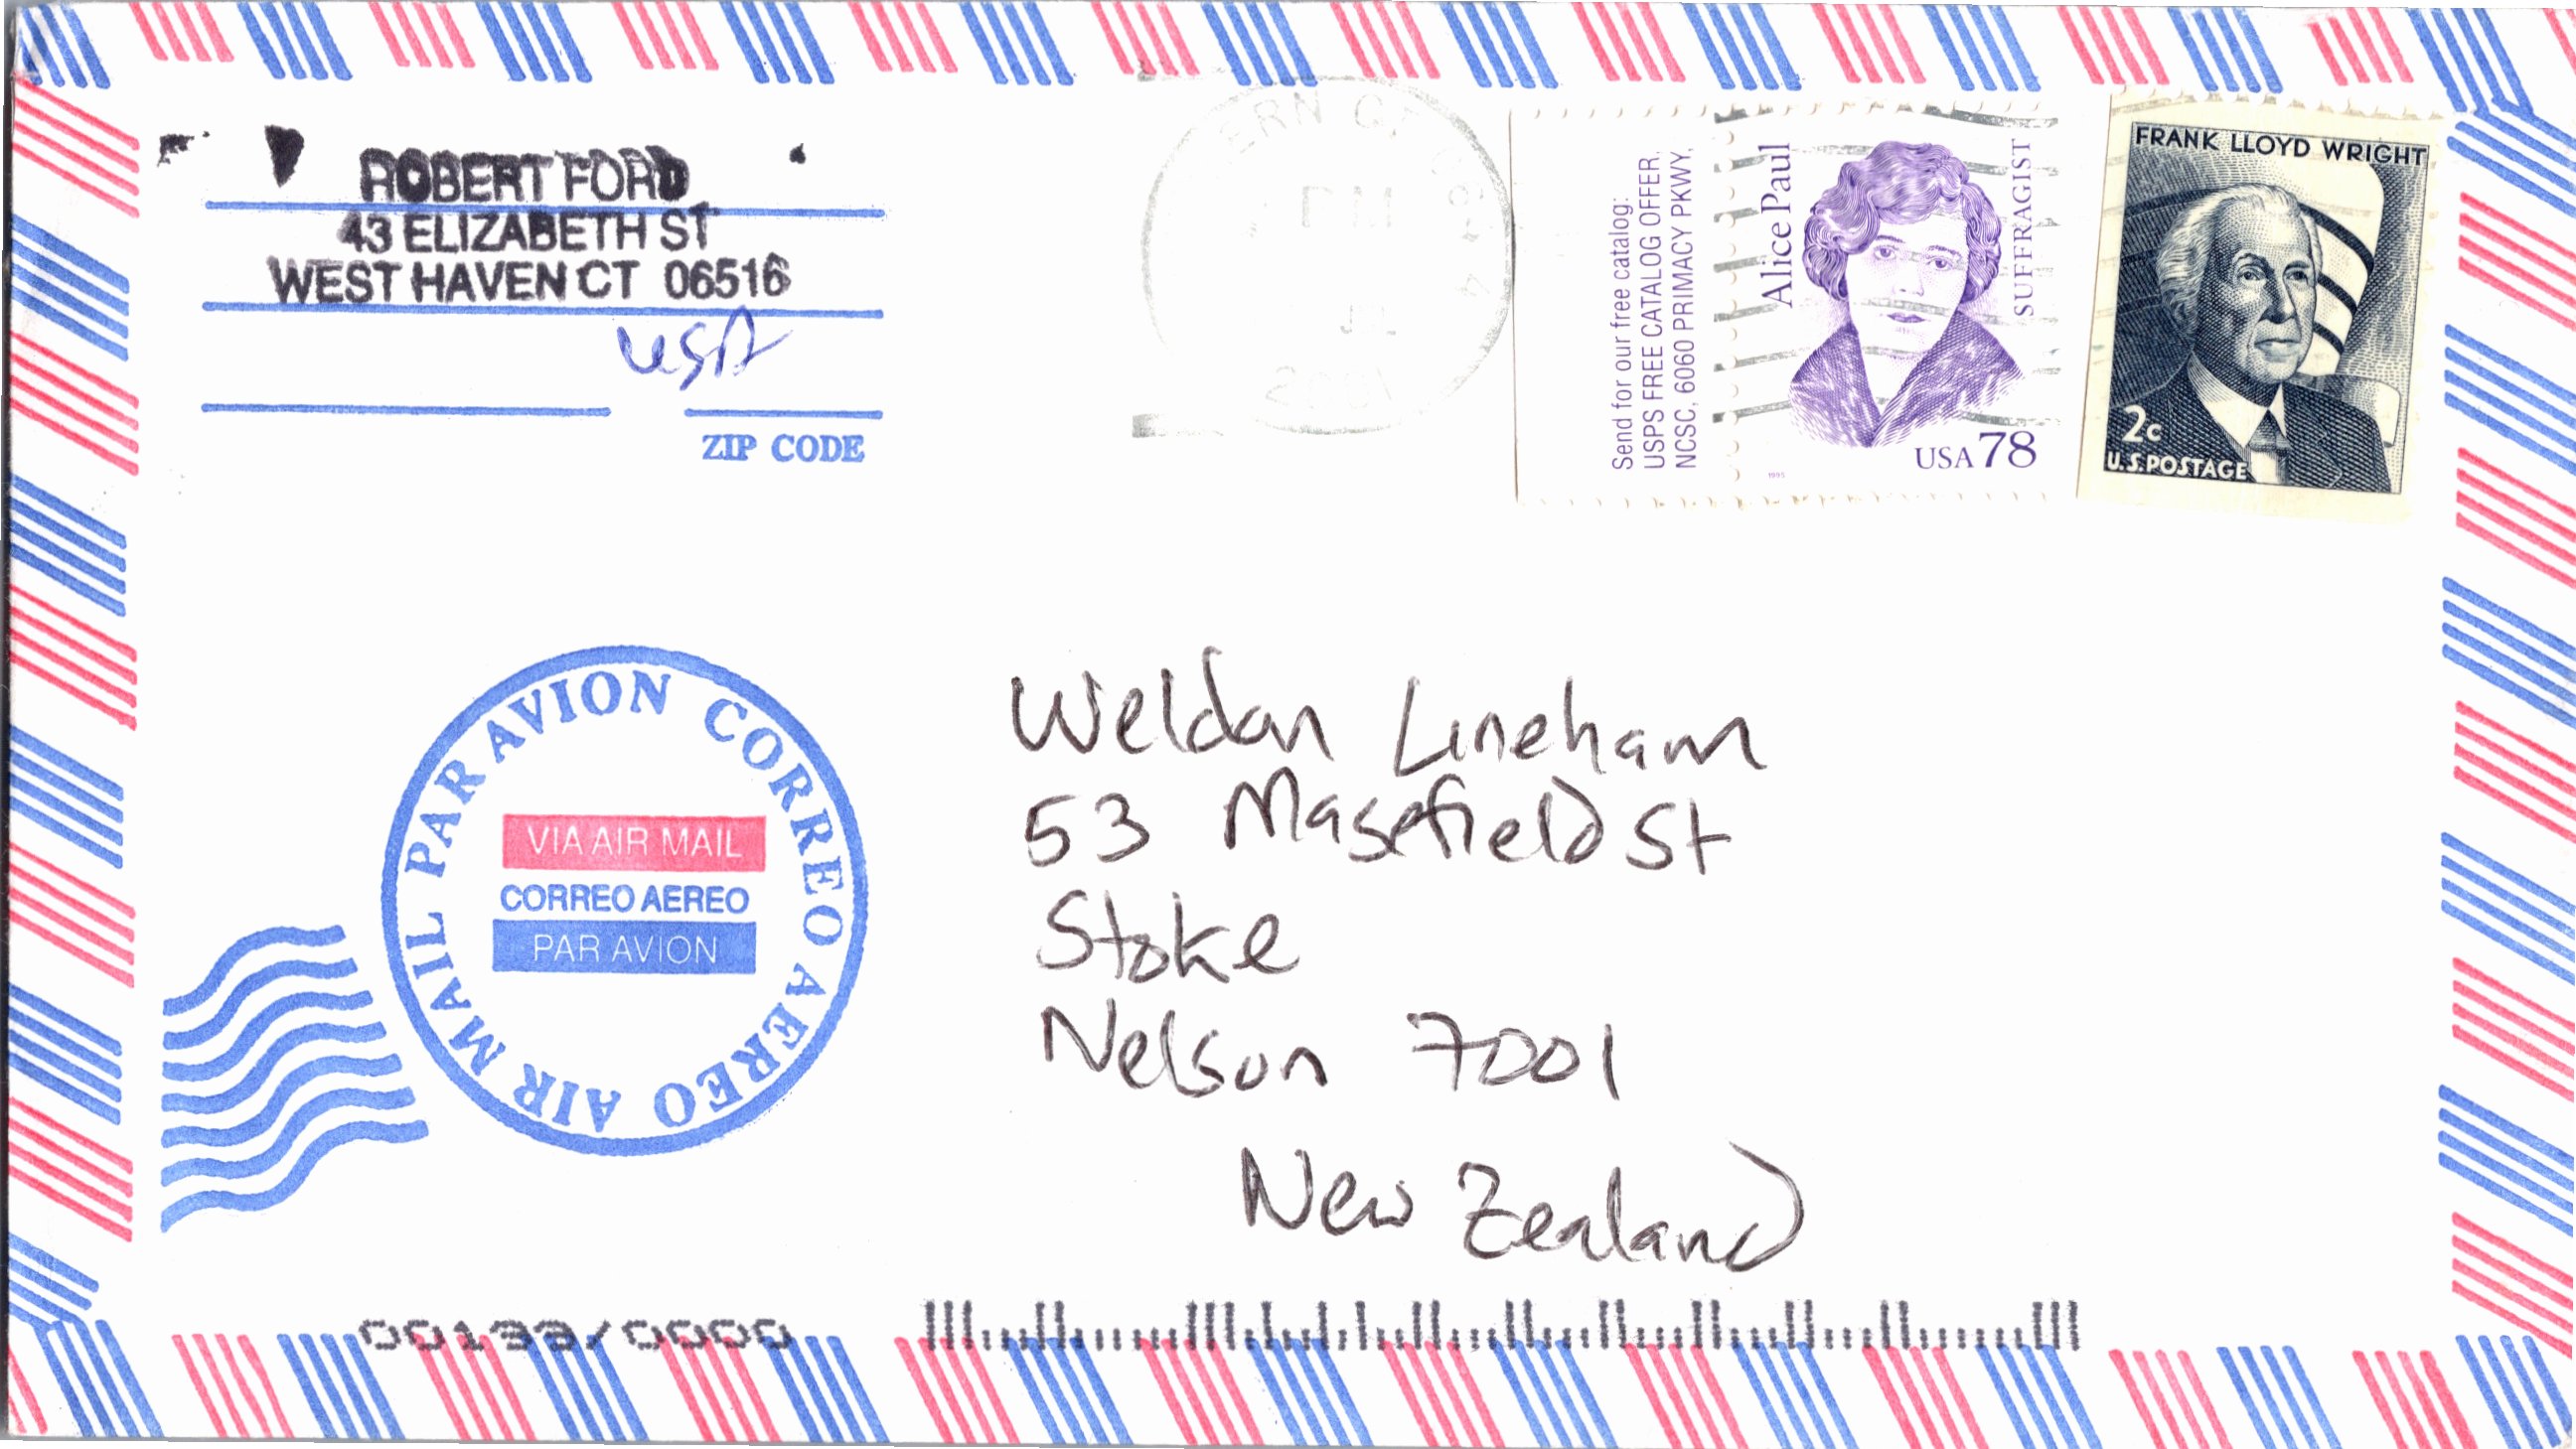 ROBERT FORD
43 ELIZABETH ST
WEST HAVEN CT 06516
USA
ZIP CODE
ERN
PM
JUL
2001
Send for our free catalog:
USPS FREE CATALOG OFFER,
NCSC, 6060 PRIMACY PKWY,
Alice Paul
SUFFRAGIST
USA 78
1995
FRANK LLOYD WRIGHT
2c
U.S. POSTAGE
AIR MAIL PAR AVION CORREO AEREO
VIA AIR MAIL
CORREO AEREO
PAR AVION
Weldon Lineham
53 Masefield St
Stoke
Nelson 7001
New Zealand
00133/0000